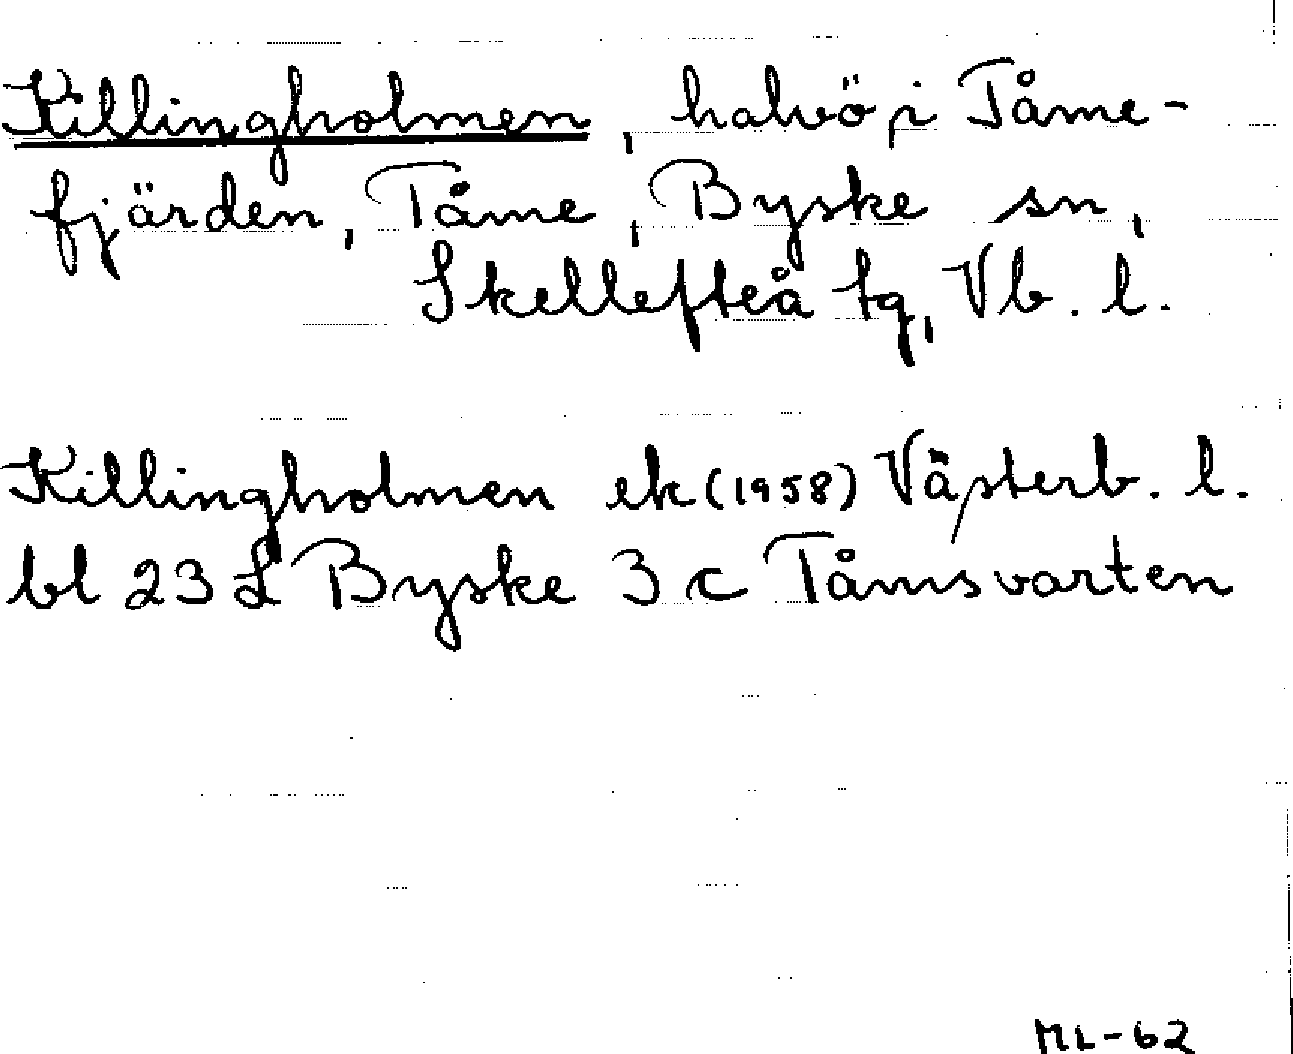 Killingholmen, halvö i Tåme-
fjärden, Tåme, Byske sn,
Skellefteå tg, Vb. l.
Killingholmen ek (1958) Västerb. l.
bl 23 L Byske 3 c Tåmsvarten
ML-62